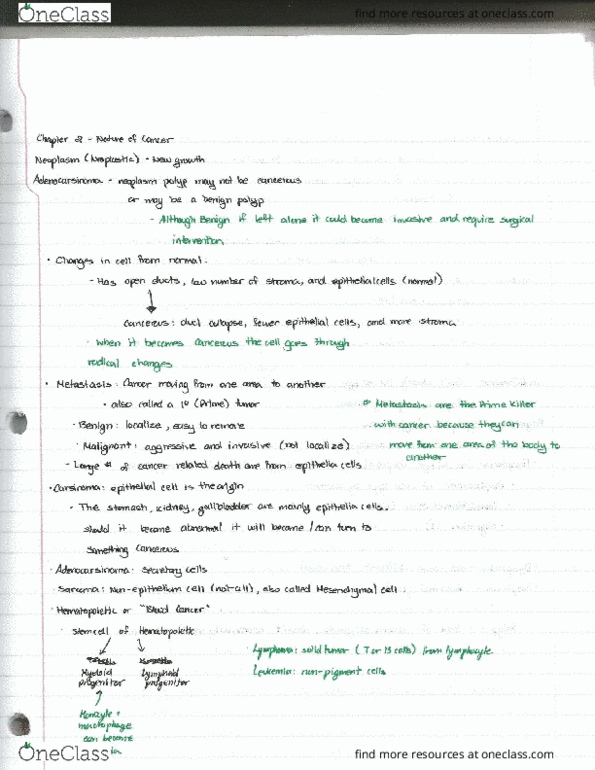 OneClass
find more resources at oneclass.com
Chapter 2 - Nature of Cancer
Neoplasm (Neoplastic) - New growth
Adenocarsinoma - neoplasm polyp may not be cancerous
or may be a benign polyp
- Although Benign if left alone it could become invasive and require surgical
intervention
• Changes in cell from normal.
- Has open ducts, low number of stroma, and epithelial cells (normal)
cancerous: duct collapse, fewer epithelial cells, and more stroma
• When it becomes cancerous the cell goes through
radical changes
• Metastasis: Cancer moving from one area to another
• also called a 1° (Prime) tumor
• Benign: localize, easy to remove
• Malignant: aggressive and invasive (not localize)
- Large # of cancer related death are from epithelia cells
Metastasis are the Prime Killer
with cancer because they can
move from one area of the body to
another
• Carsinoma: epithelial cell is the origin
• The stomach, kidney, gallbladder are mainly epithelia cells.
should it become abnormal it will become / can turn to
something cancerous
• Adenocarsinoma: secretary cells
• Sarcoma: Non-epithelium cell (not-all), also called Mesenchymal cell.
• Hematopoietic or "Blood Cancer"
• stem cell of Hematopoietic
Myeloid progenitor
Lymphoid progenitor
Monocyte +
macrophage
can become
• Lymphoma: solid tumor (T or B cells) from lymphocyte
Leukemia: non-pigment cells
OneClass
find more resources at oneclass.com